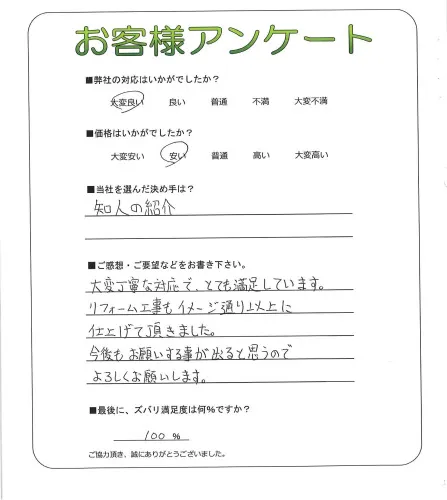 お客様アンケート
■弊社の対応はいかがでしたか？
大変良い 良い 普通 不満 大変不満
■価格はいかがでしたか？
大変安い 安い 普通 高い 大変高い
■当社を選んだ決め手は？
知人の紹介
■ご感想・ご要望などをお書き下さい。
大変丁寧な対応で、とても満足しています。
リフォーム工事もイメージ通り以上に
仕上げて頂きました。
今後もお願いする事が出ると思うので
よろしくお願いします。
■最後に、ズバリ満足度は何%ですか？
100 %
ご協力頂き、誠にありがとうございました。